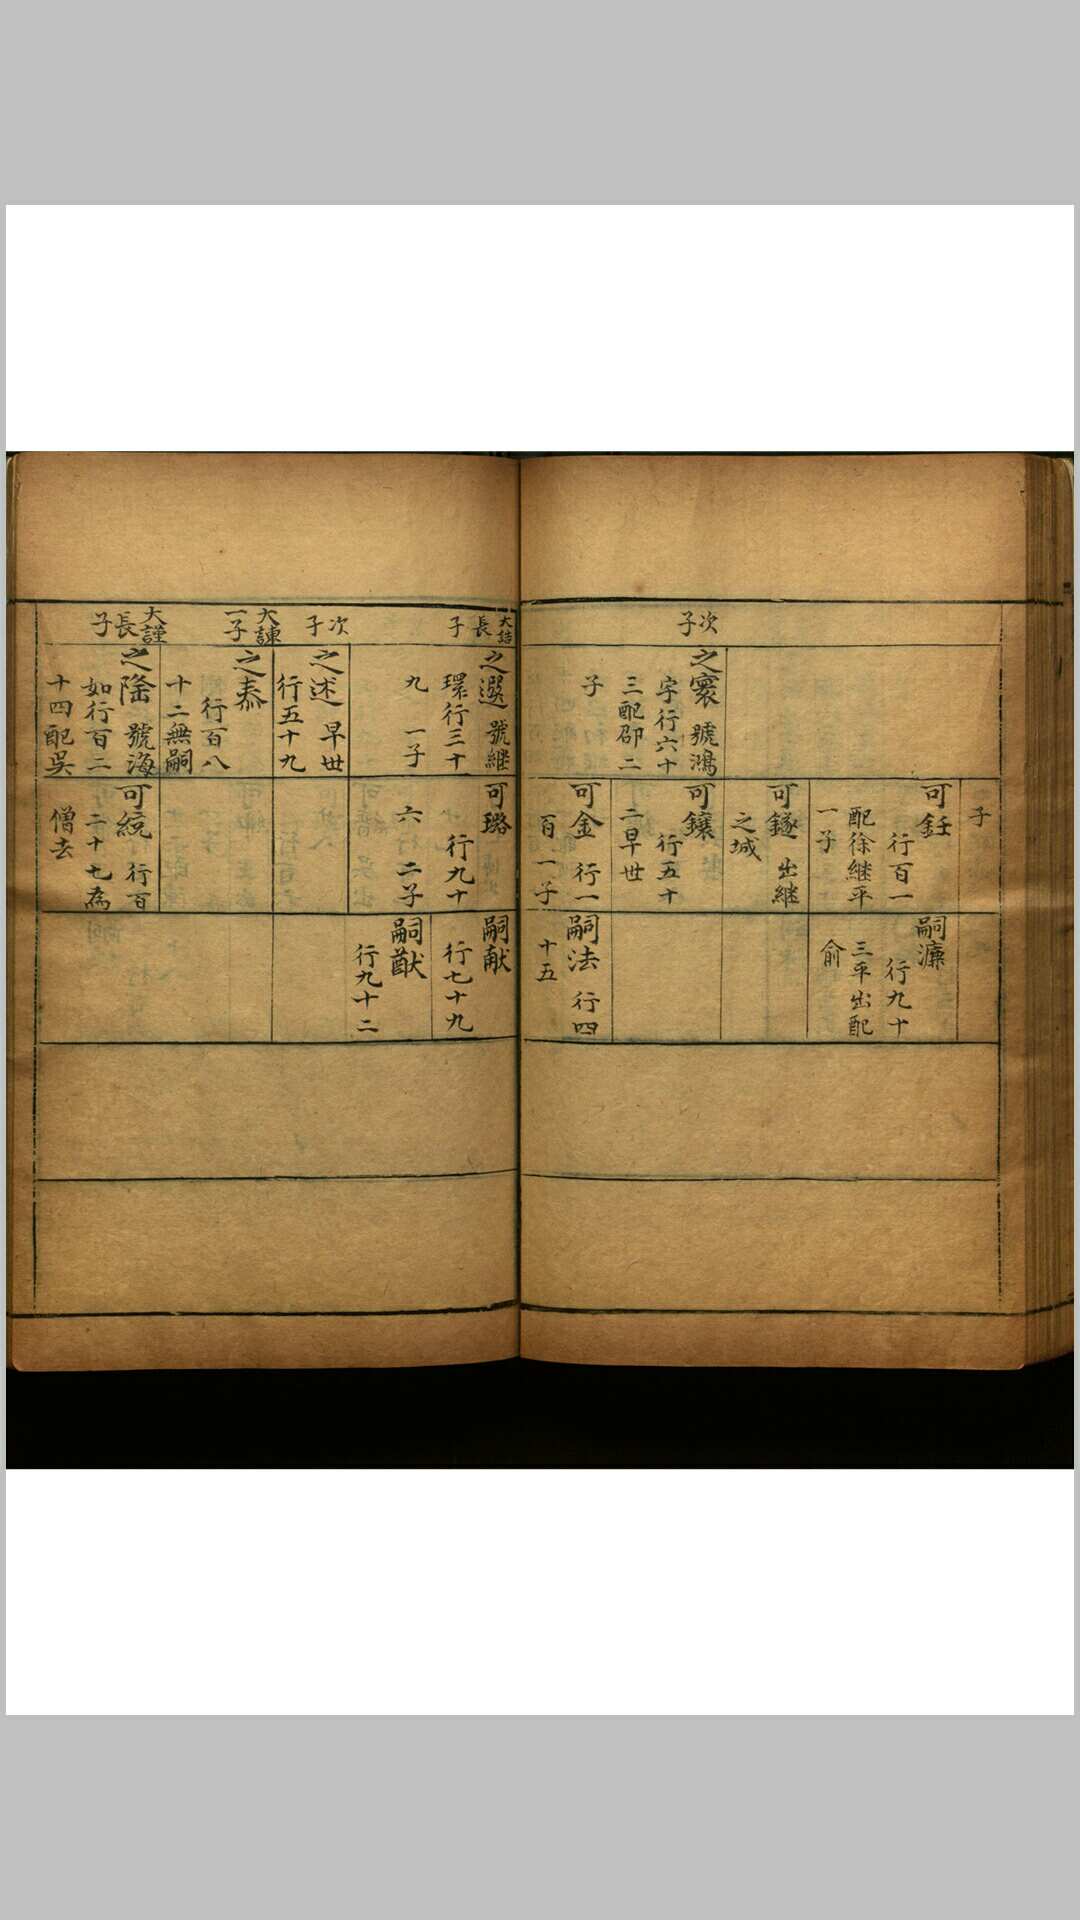 次子
之寰 號鴻
宇行六十
三配邵二
子
子
可鈺
行百一
配徐継平
一子
可鐩 出継
之城
可鑲
行五十
二早世
可金 行一
百 一子
嗣濂
行九十
三平出配
俞
嗣法 行四
十五
大詰長子
次子
大諫一子
大謹長子
之選 號継
環行三十
九 一子
之述 早世
行五十九
之泰
行百八
十二無嗣
之隆 號海
如行百二
十四配吳
可璐
行九十
六 二子
可統 行百
二十七為
僧去
嗣献
行七十九
嗣猷
行九十二